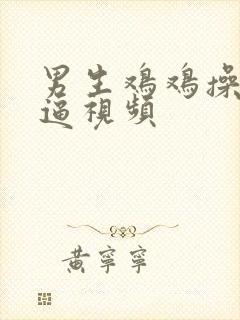 男生鸡鸡操
逼視頻
黃寧寧